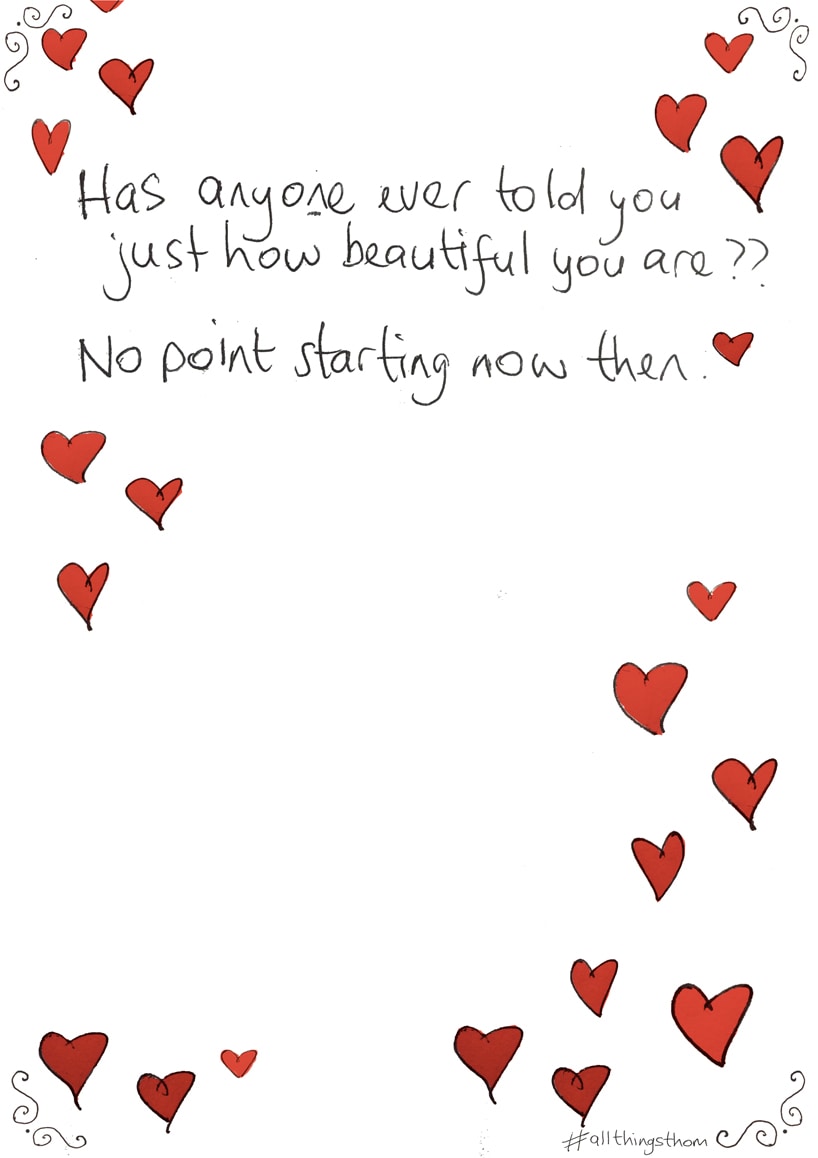 Has anyone ever told you
just how beautiful you are??
No point starting now then.
#allthingsthom